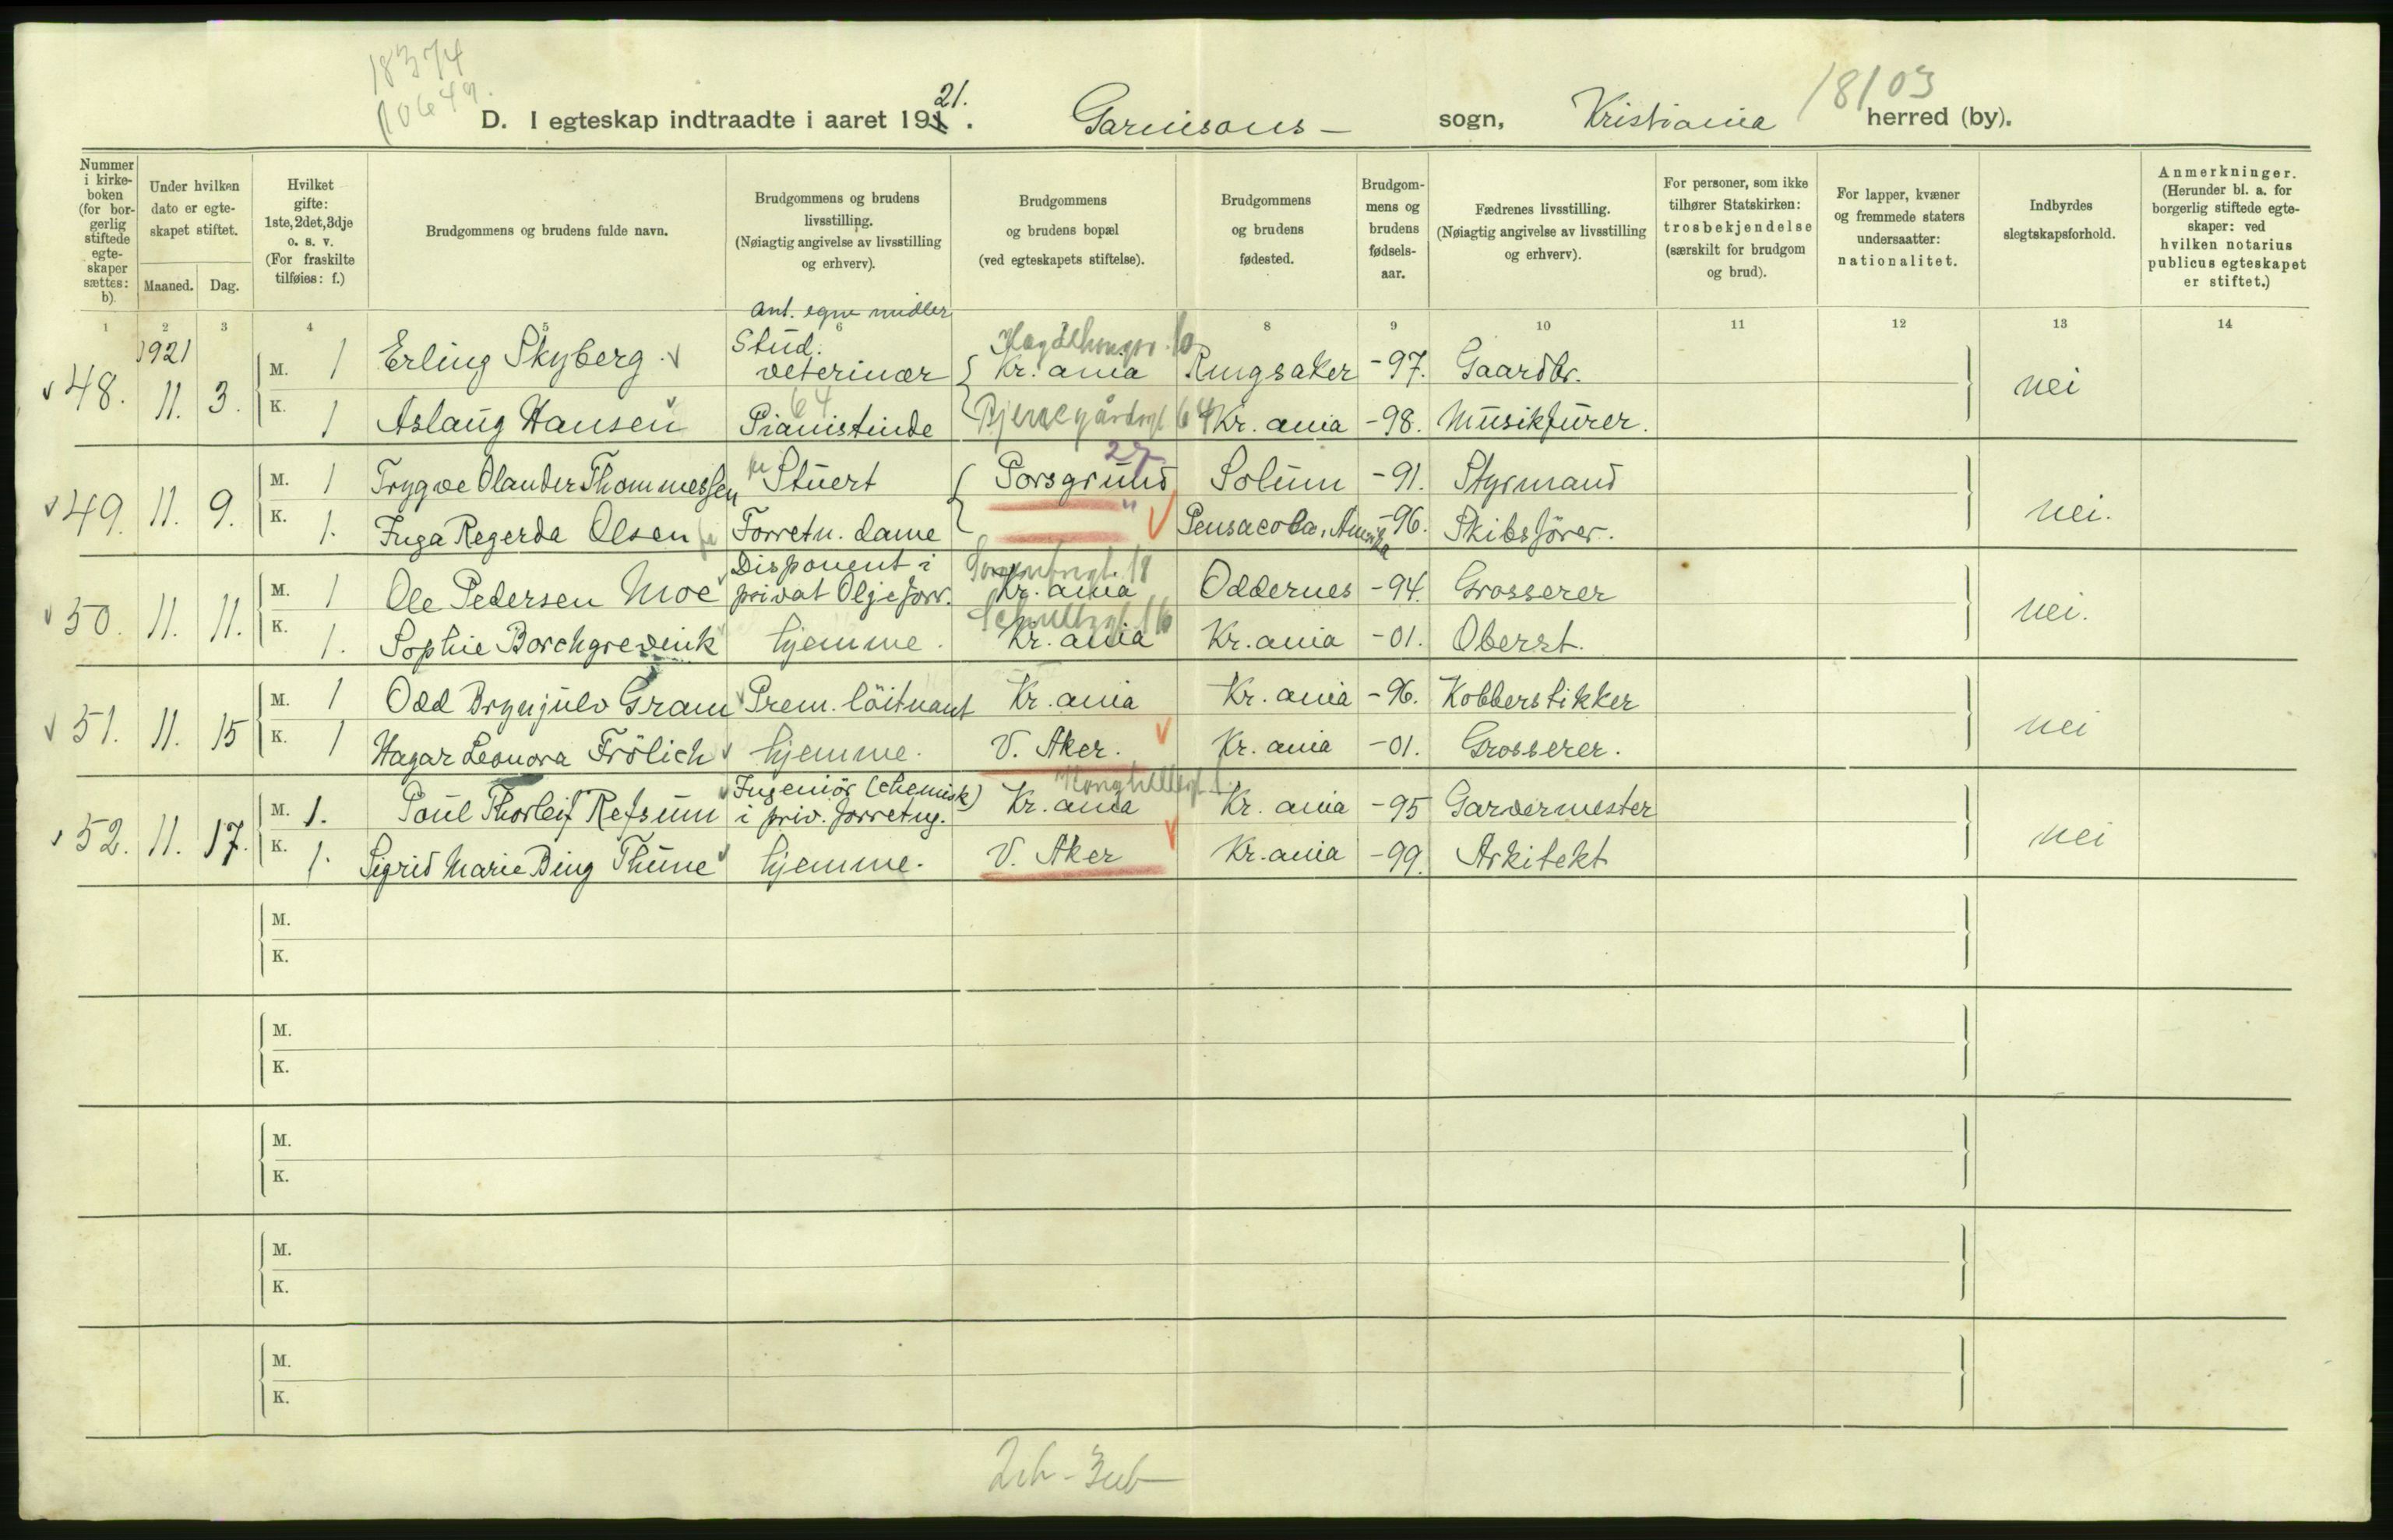 18374
10649.
18103
D. I egteskap indtraadte i aaret 191 21. Garnisons- sogn, Kristiania herred (by).
Nummer i kirke-boken (for bor-gerlig stiftede egte-skaper sættes: b).
Under hvilken dato er egte-skapet stiftet.
Maaned. Dag.
Hvilket gifte: 1ste, 2det, 3dje o. s. v. (For fraskilte tilføies: f.)
Brudgommens og brudens fulde navn.
Brudgommens og brudens livsstilling. (Nøiagtig angivelse av livsstilling og erhverv).
Brudgommens og brudens bopæl (ved egteskapets stiftelse).
Brudgommens og brudens fødested.
Brudgom-mens og brudens fødsels-aar.
Fædrenes livsstilling. (Nøiagtig angivelse av livsstilling og erhverv).
For personer, som ikke tilhører Statskirken: trosbekjendelse (særskilt for brudgom og brud).
For lapper, kvæner og fremmede staters undersaatter: nationalitet.
Indbyrdes slegtskapsforhold.
Anmerkninger. (Herunder bl. a. for borgerlig stiftede egte-skaper: ved hvilken notarius publicus egteskapet er stiftet.)
1 2 3 4 5 6 8 9 10 11 12 13 14
1921
ant. egne midler
48. 11. 3. M. 1 Erling Skyberg Stud. veterinær Kr.ania Ringsaker -97. Gaardbr. nei
K. 1 Aslaug Hansen Pianistinde 64 Bjerregårdsgt 64 Kr.ania -98. Musikfürer.
49. 11. 9. M. 1 Trygve Olander Thommessen Stuert Porsgrund 27 Solum -91. Styrmand nei.
K. 1. Inga Regerda Olsen Forretn. dame " Pensacola, Amerika -96. Skibsförer.
50. 11. 11. M. 1 Ole Pedersen Moe Disponent i privat Oljeforr. Kr.ania Oddernes -94. Grosserer nei.
K. 1. Sophie Borchgrevink hjemme. Schultzgt. 16 Kr.ania Kr.ania -01. Oberst.
51. 11. 15 M. 1 Odd Brynjulv Gram Prem. löitnant Kr.ania Kr.ania -96. Kobberstikker nei
K. 1 Hagar Leonora Frölich hjemme. V. Aker. Kr.ania -01. Grosserer.
52. 11. 17. M. 1. Poul Thorleif Refsum Ingeniör (chemisk) i priv. forretng. Kr.ania Kr.ania -95 Garvermester nei
K. 1. Sigrid Marie Bing Thune hjemme. V. Aker Kr.ania -99. Arkitekt
M.
K.
M.
K.
M.
K.
M.
K.
M.
K.